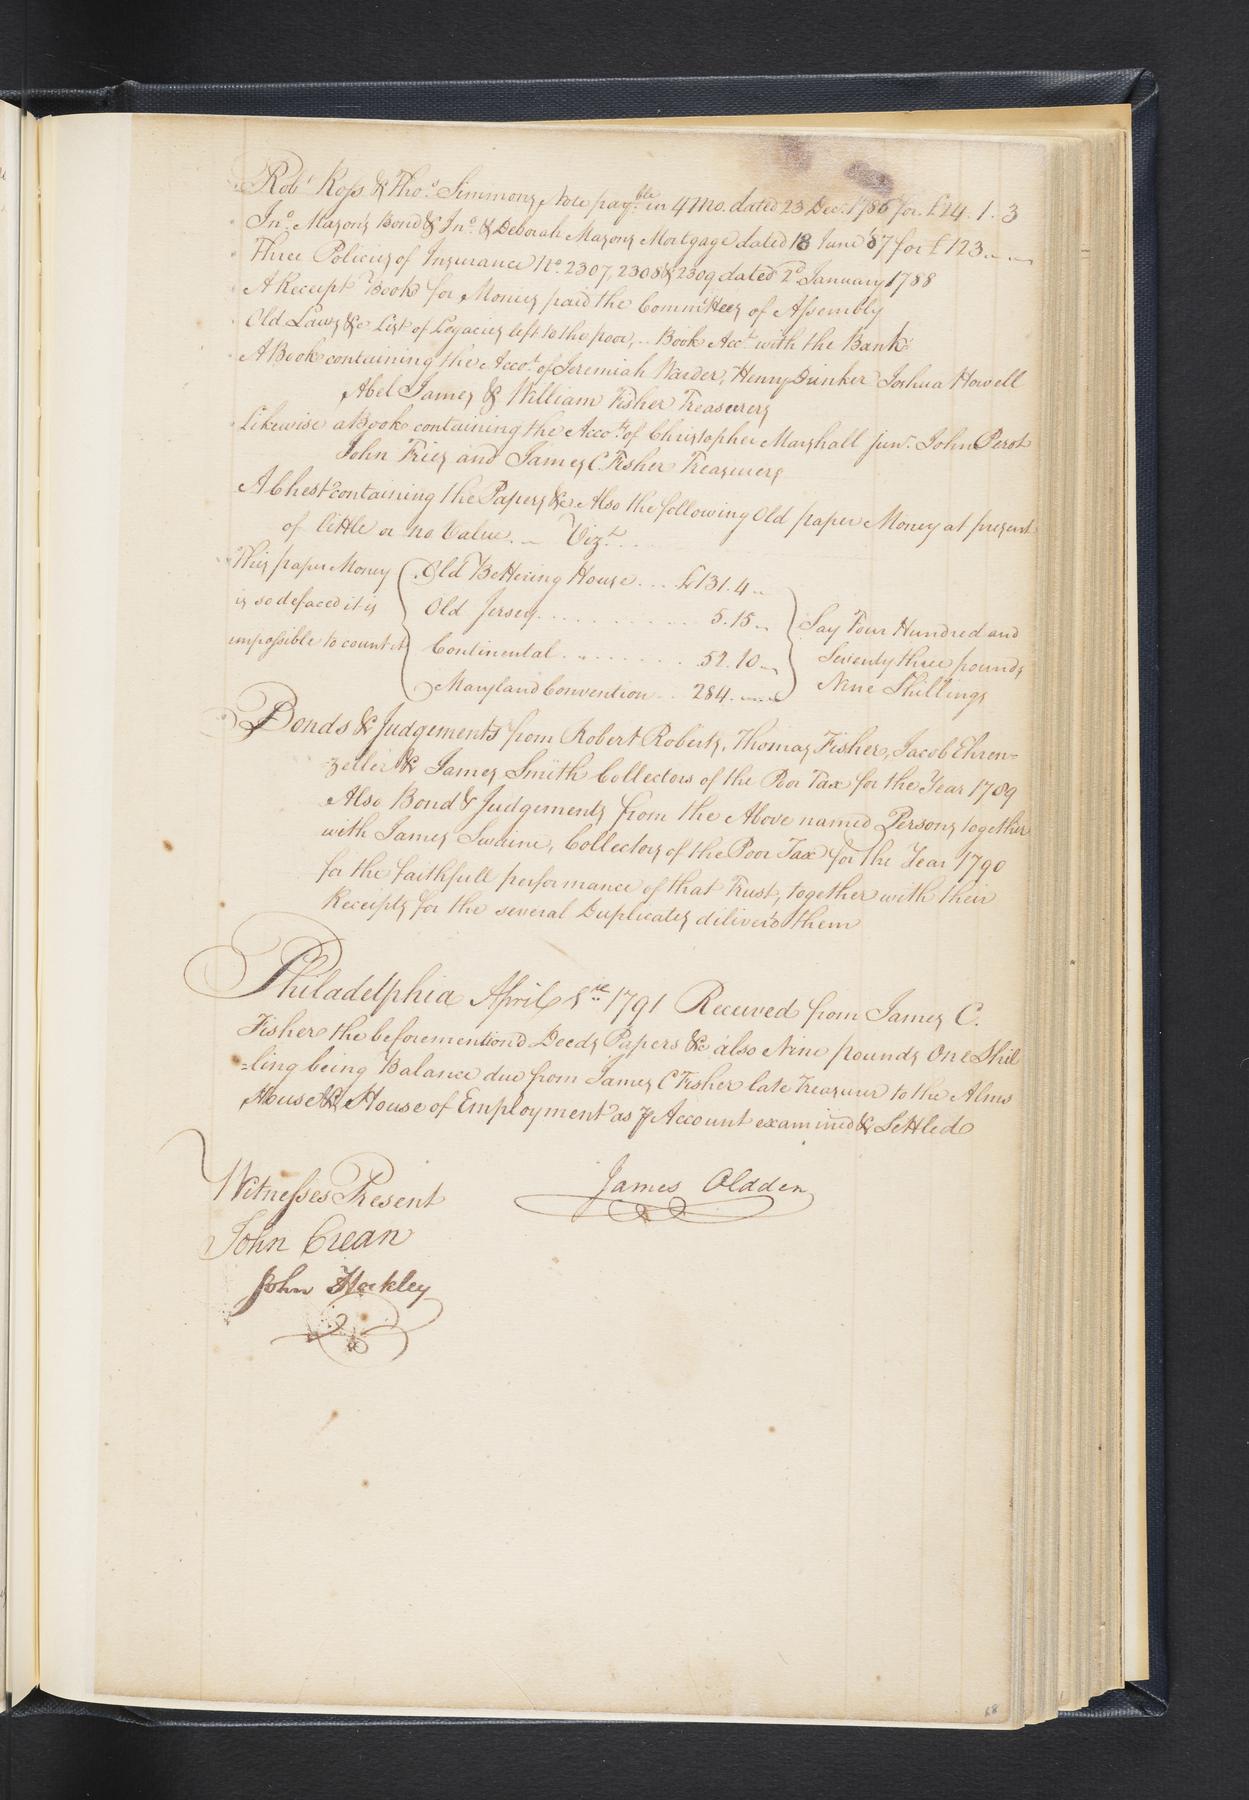 Robt Ross & Thos. Simmons Note payble in 4 Mo. dated 23 Dec. 1786 for £24. 1. 3
Jno. Masons Bond & Jno. & Deborah Masons Mortgage dated 18 June 87 for £123.
Three Policies of Insurance No. 2307, 2308 & 2309 dated 2d January 1788
A Receipt Book for Monies paid the Committees of Assembly
Old Laws &c List of Legacies left to the poor, .. Book Acct. with the Bank
A Book containing the Accot. of Jeremiah Warder, Henry Drinker Joshua Howell
Abel James & William Fisher Treasurers
Likewise a Book containing the Accots. of Christopher Marshall junr. John Perot
John Fries and James C Fisher Treasurers
A Chest containing the Papers &c Also the following Old paper Money at present
of little or no Value. Vizt.
This paper Money
is so defaced it is
impossible to count it
Old Bettering House ... £131. 4 ..
Old Jersey ........... 5. 15 ..
Continental ......... 52. 10 ..
Maryland Convention .. 284. ....
Say Four Hundred and
Seventy three pounds
Nine Shillings
Bonds & Judgements from Robert Roberts, Thomas Fisher, Jacob Ehren=
=zeller & James Smith Collectors of the Poor Tax for the Year 1789
Also Bond & Judgements from the Above named Persons together
with James Swaine, Collectors of the Poor Tax for the Year 1790
for the faithfull performance of that Trust, together with their
Receipts for the several Duplicates diliver'd them
Philadelphia April 1791 Received from James C.
Fisher the beforemention'd Deeds Papers &c also Nine pounds One Shil
=ling being Balance due from James C Fisher late Treasurer to the Alms
House & House of Employment as ⅌ Account examined & Settled
James Oldden
Witnesses Present
John Crean
John Hockley
68